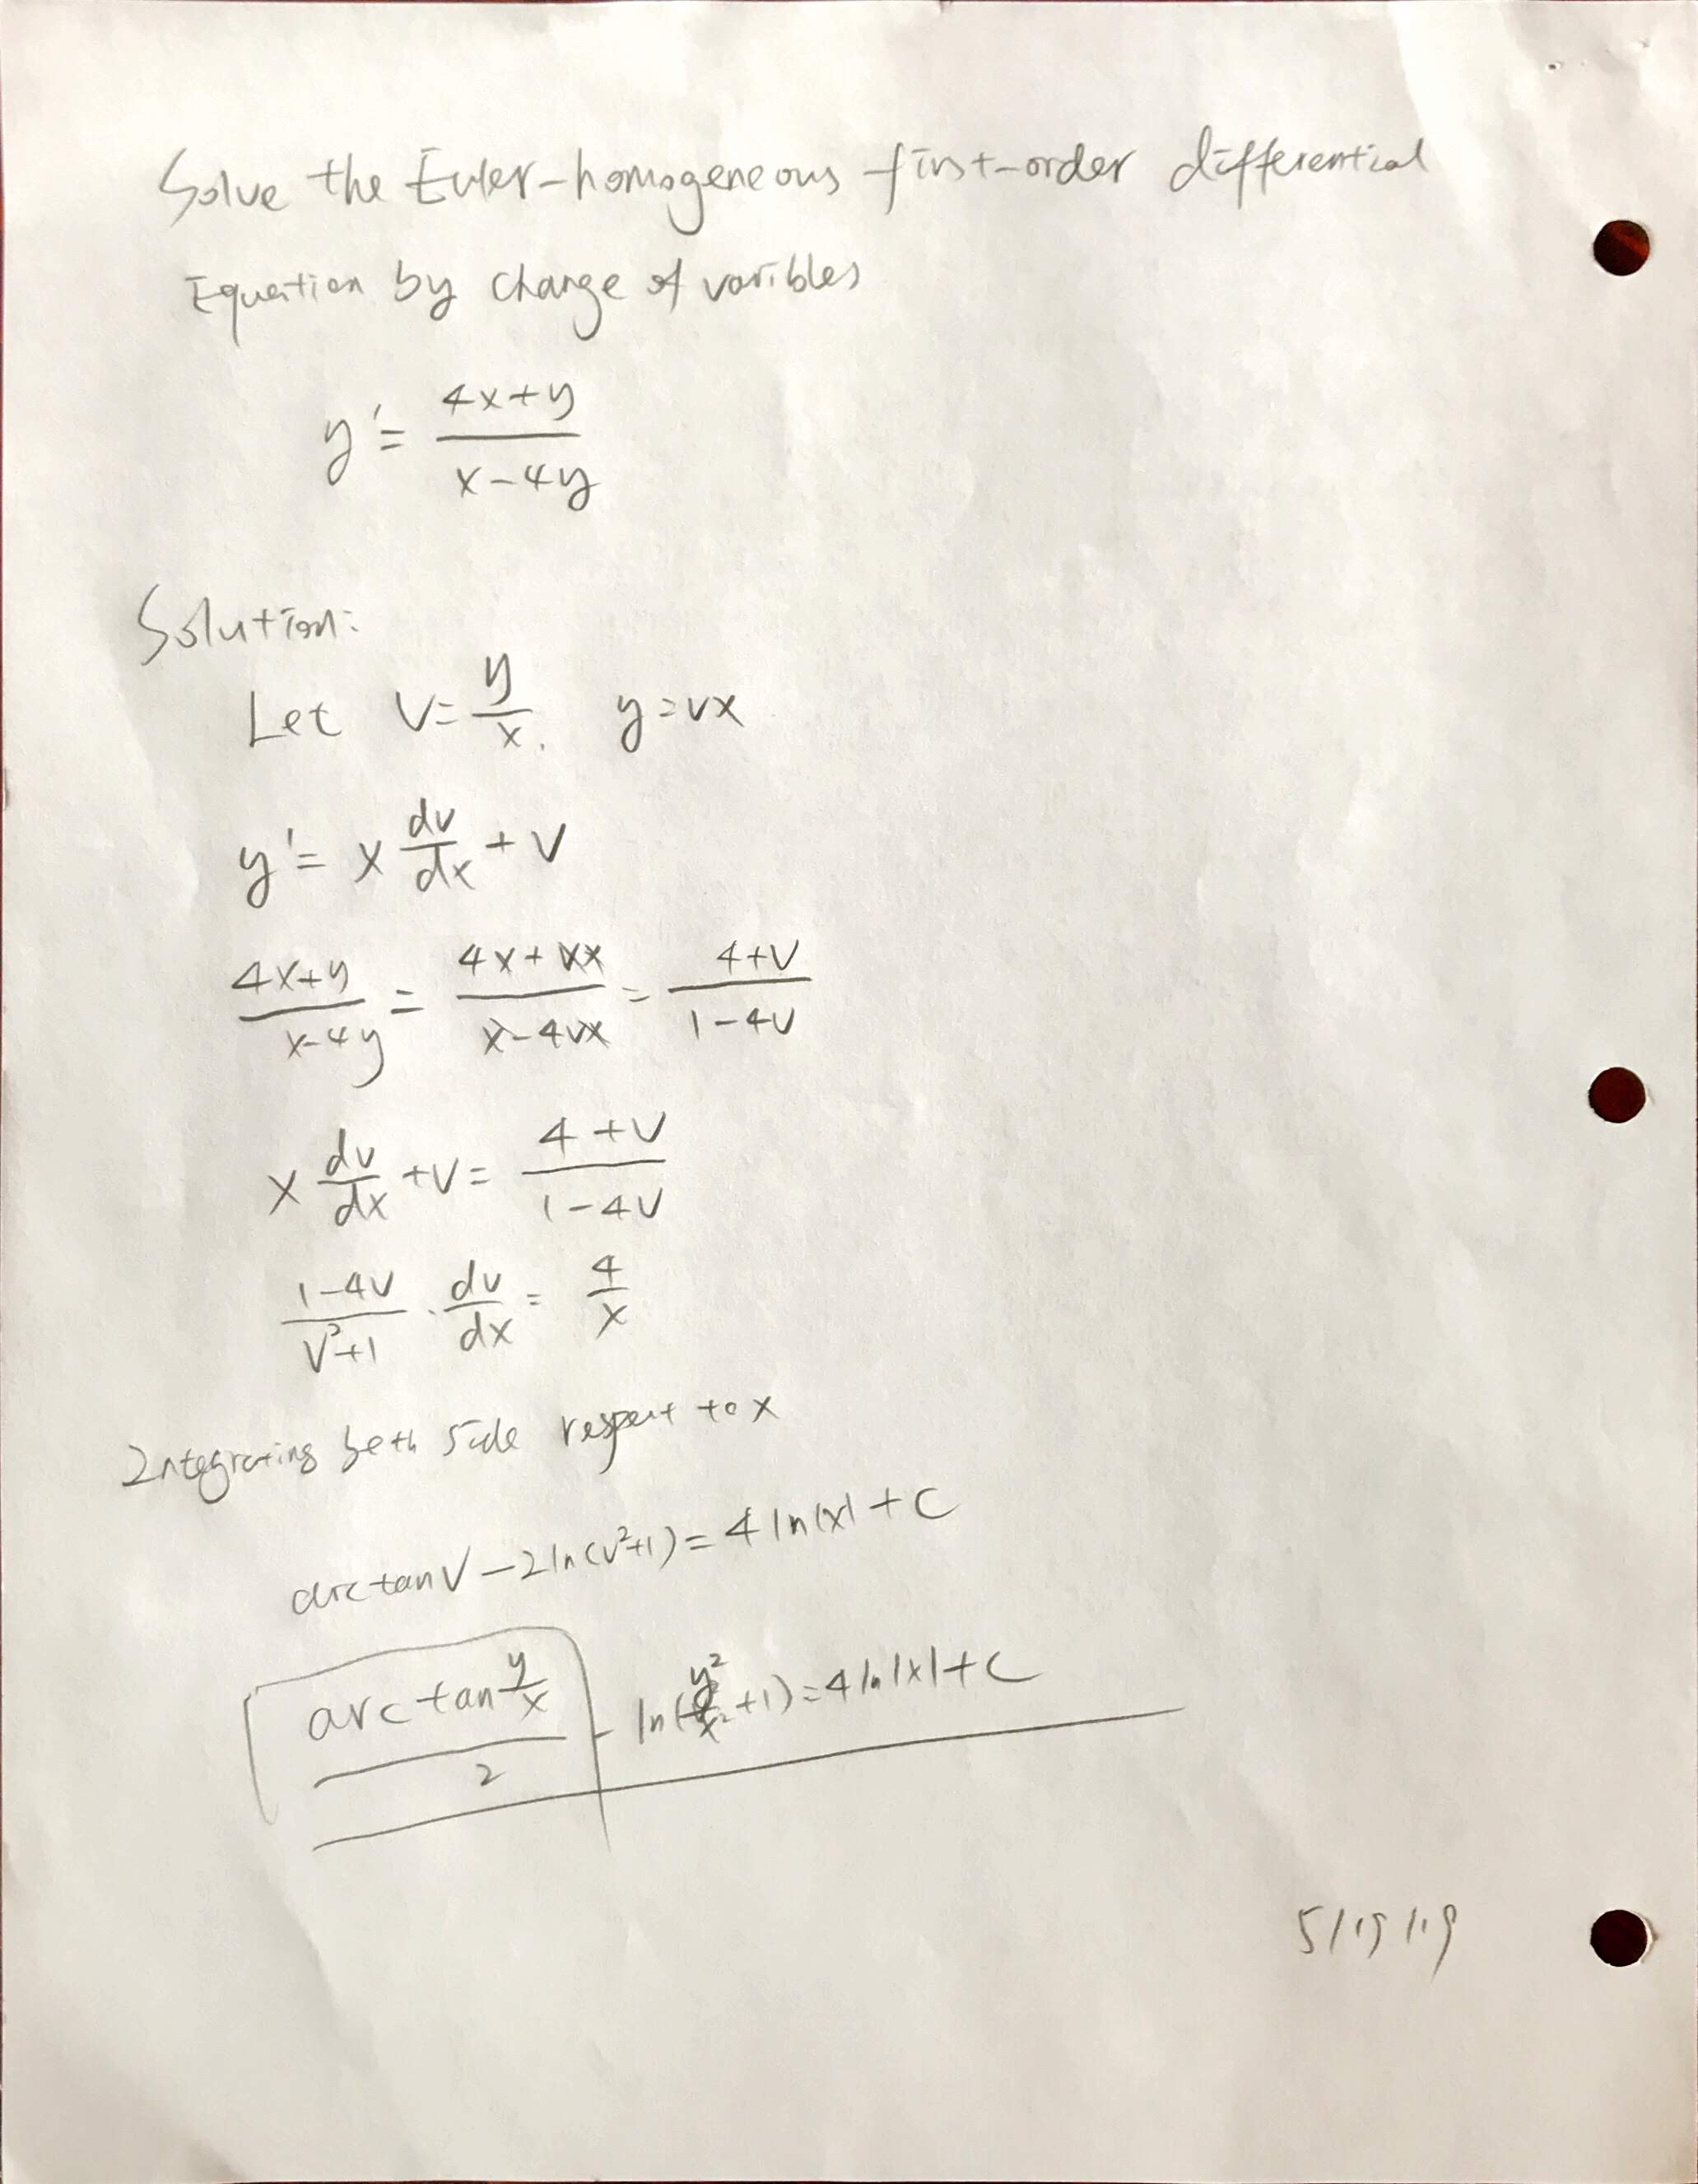 Solve the Euler-homogeneous first-order differential
Equation by change of varibles
y' = (4x+y)/(x-4y)
Solution:
Let v = y/x. y = vx
y' = x dv/dx + v
(4x+y)/(x-4y) = (4x+vx)/(x-4vx) = (4+v)/(1-4v)
x dv/dx + v = (4+v)/(1-4v)
(1-4v)/(v²+1) · dv/dx = 4/x
Integrating both side respect to x
arctan v - 2 ln(v²+1) = 4 ln|x| + C
(arctan y/x)/2 - ln(y²/x² + 1) = 4 ln|x| + C